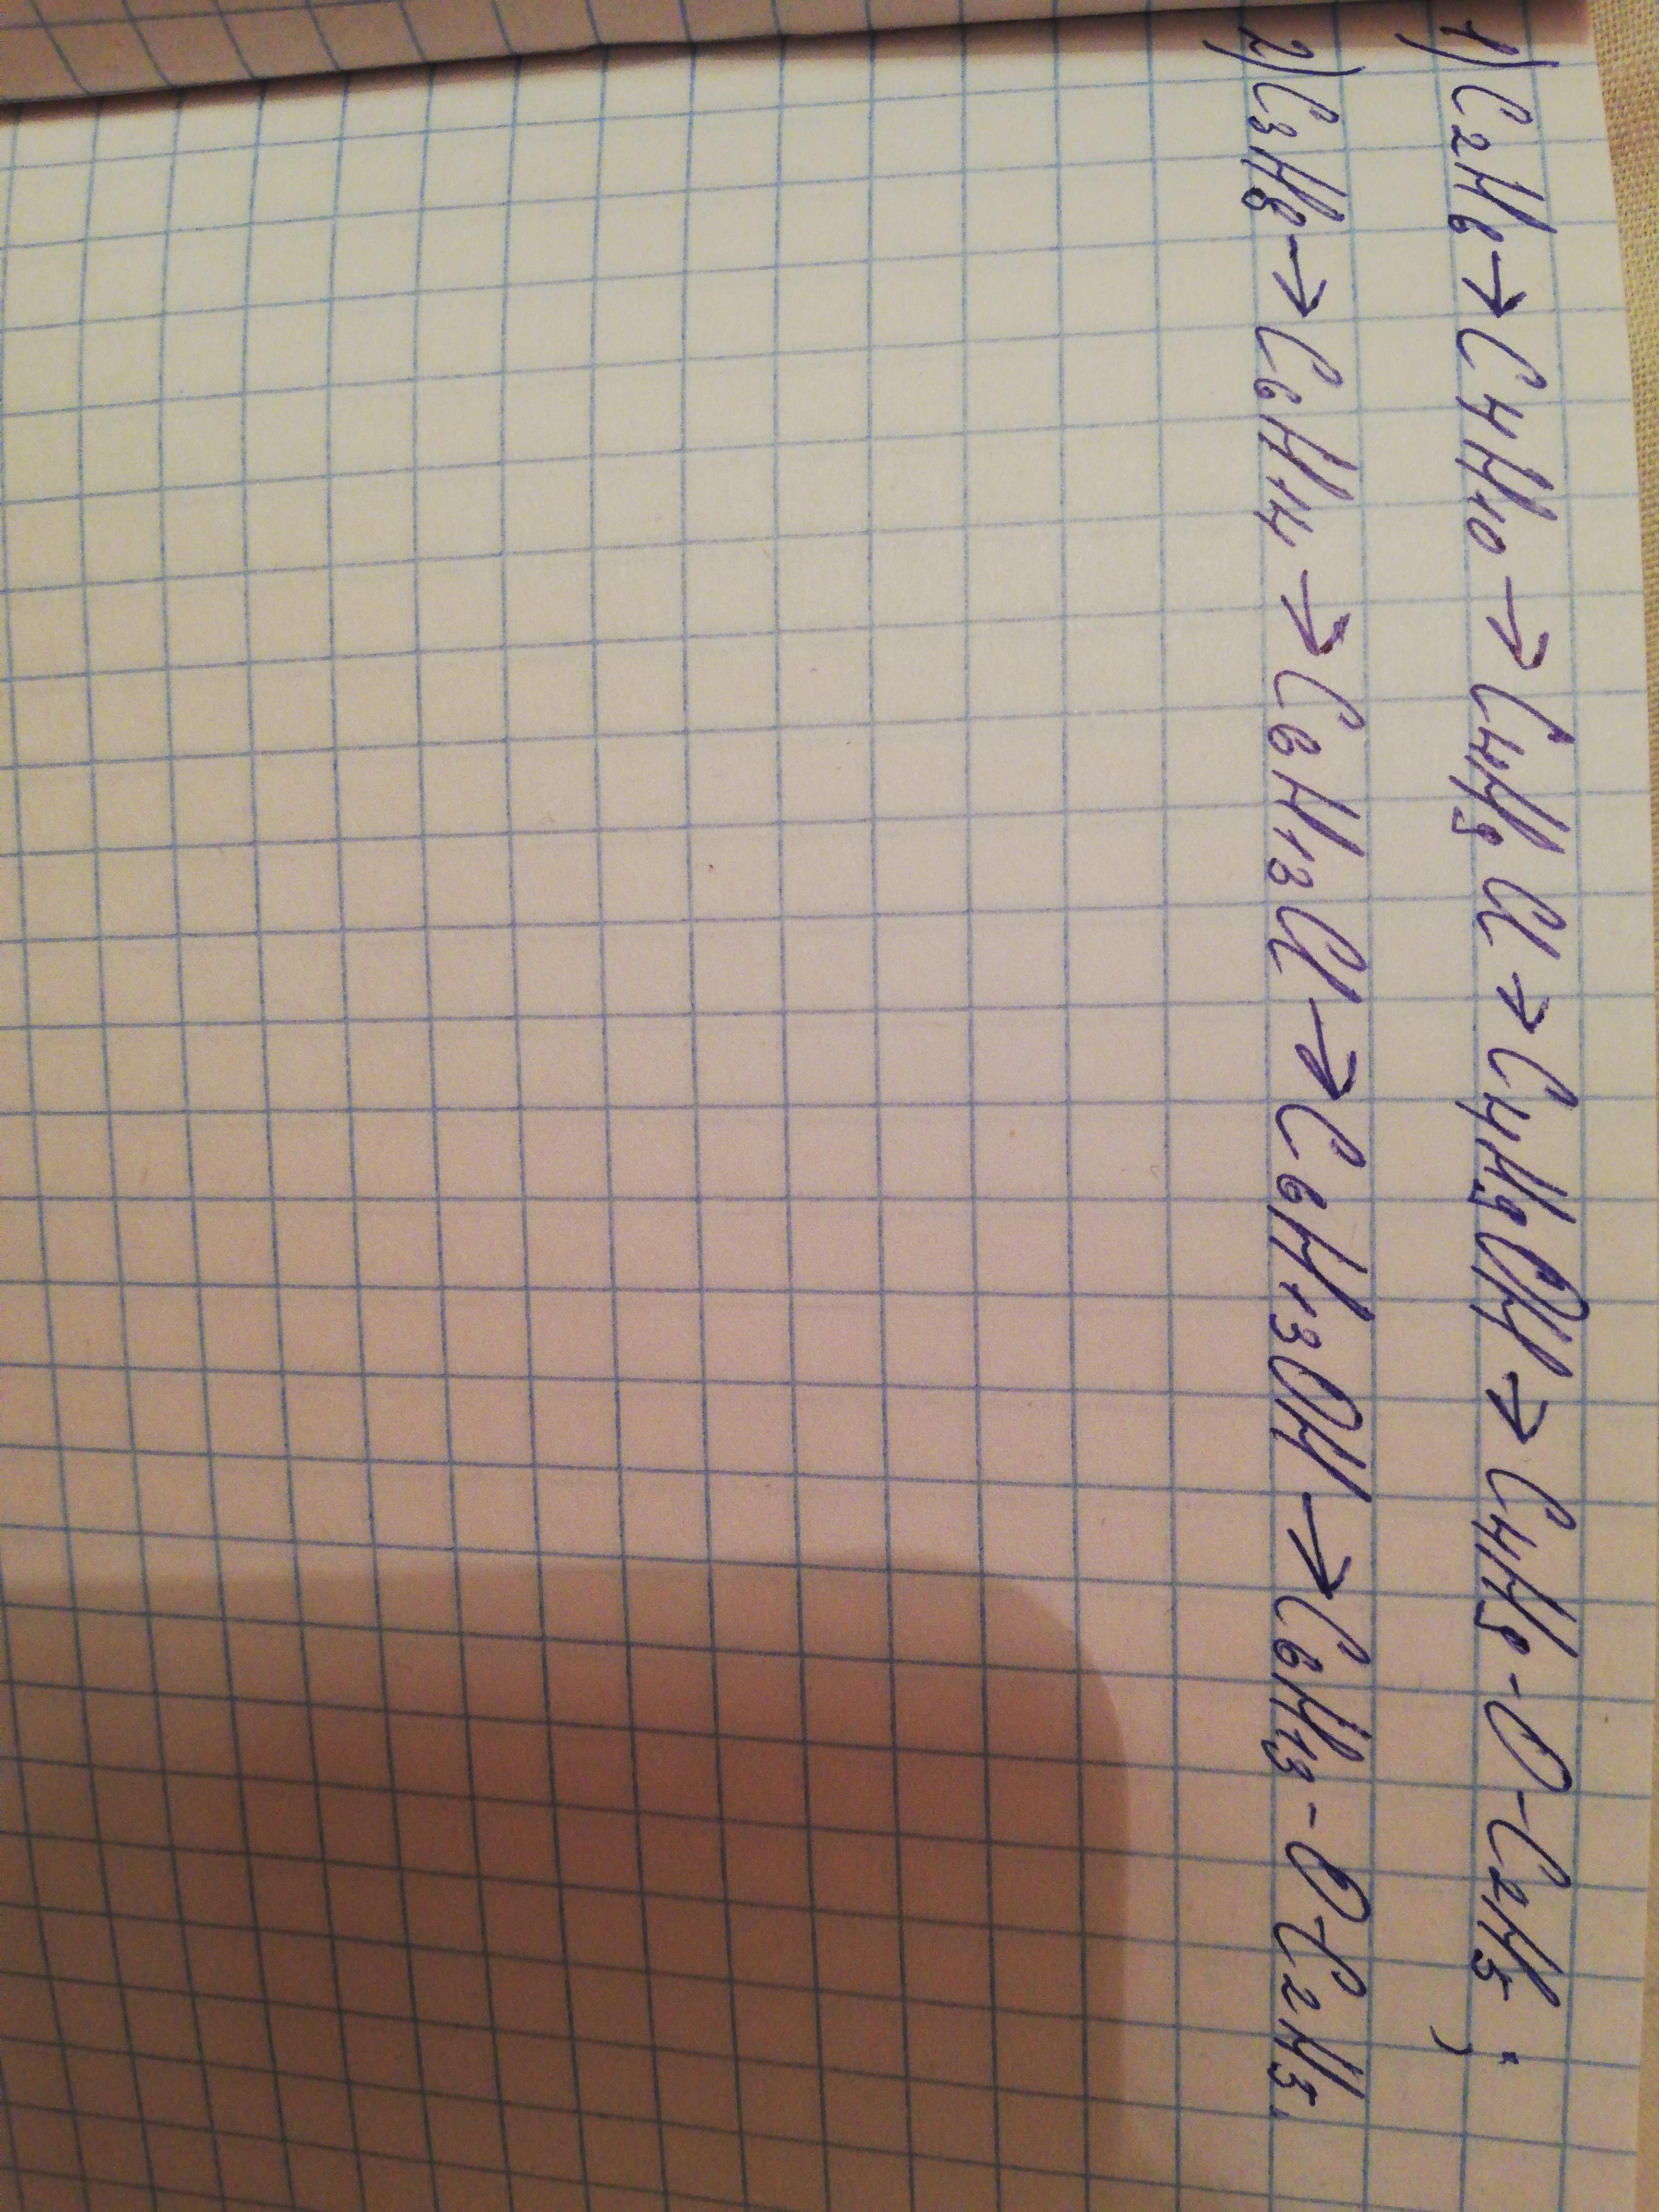 1) C₂H₆ → C₄H₁₀ → C₄H₉Cl → C₄H₉OH → C₄H₉-O-C₂H₅ ;
2) C₃H₈ → C₆H₁₄ → C₆H₁₃Cl → C₆H₁₃OH → C₆H₁₃-O-C₂H₅.